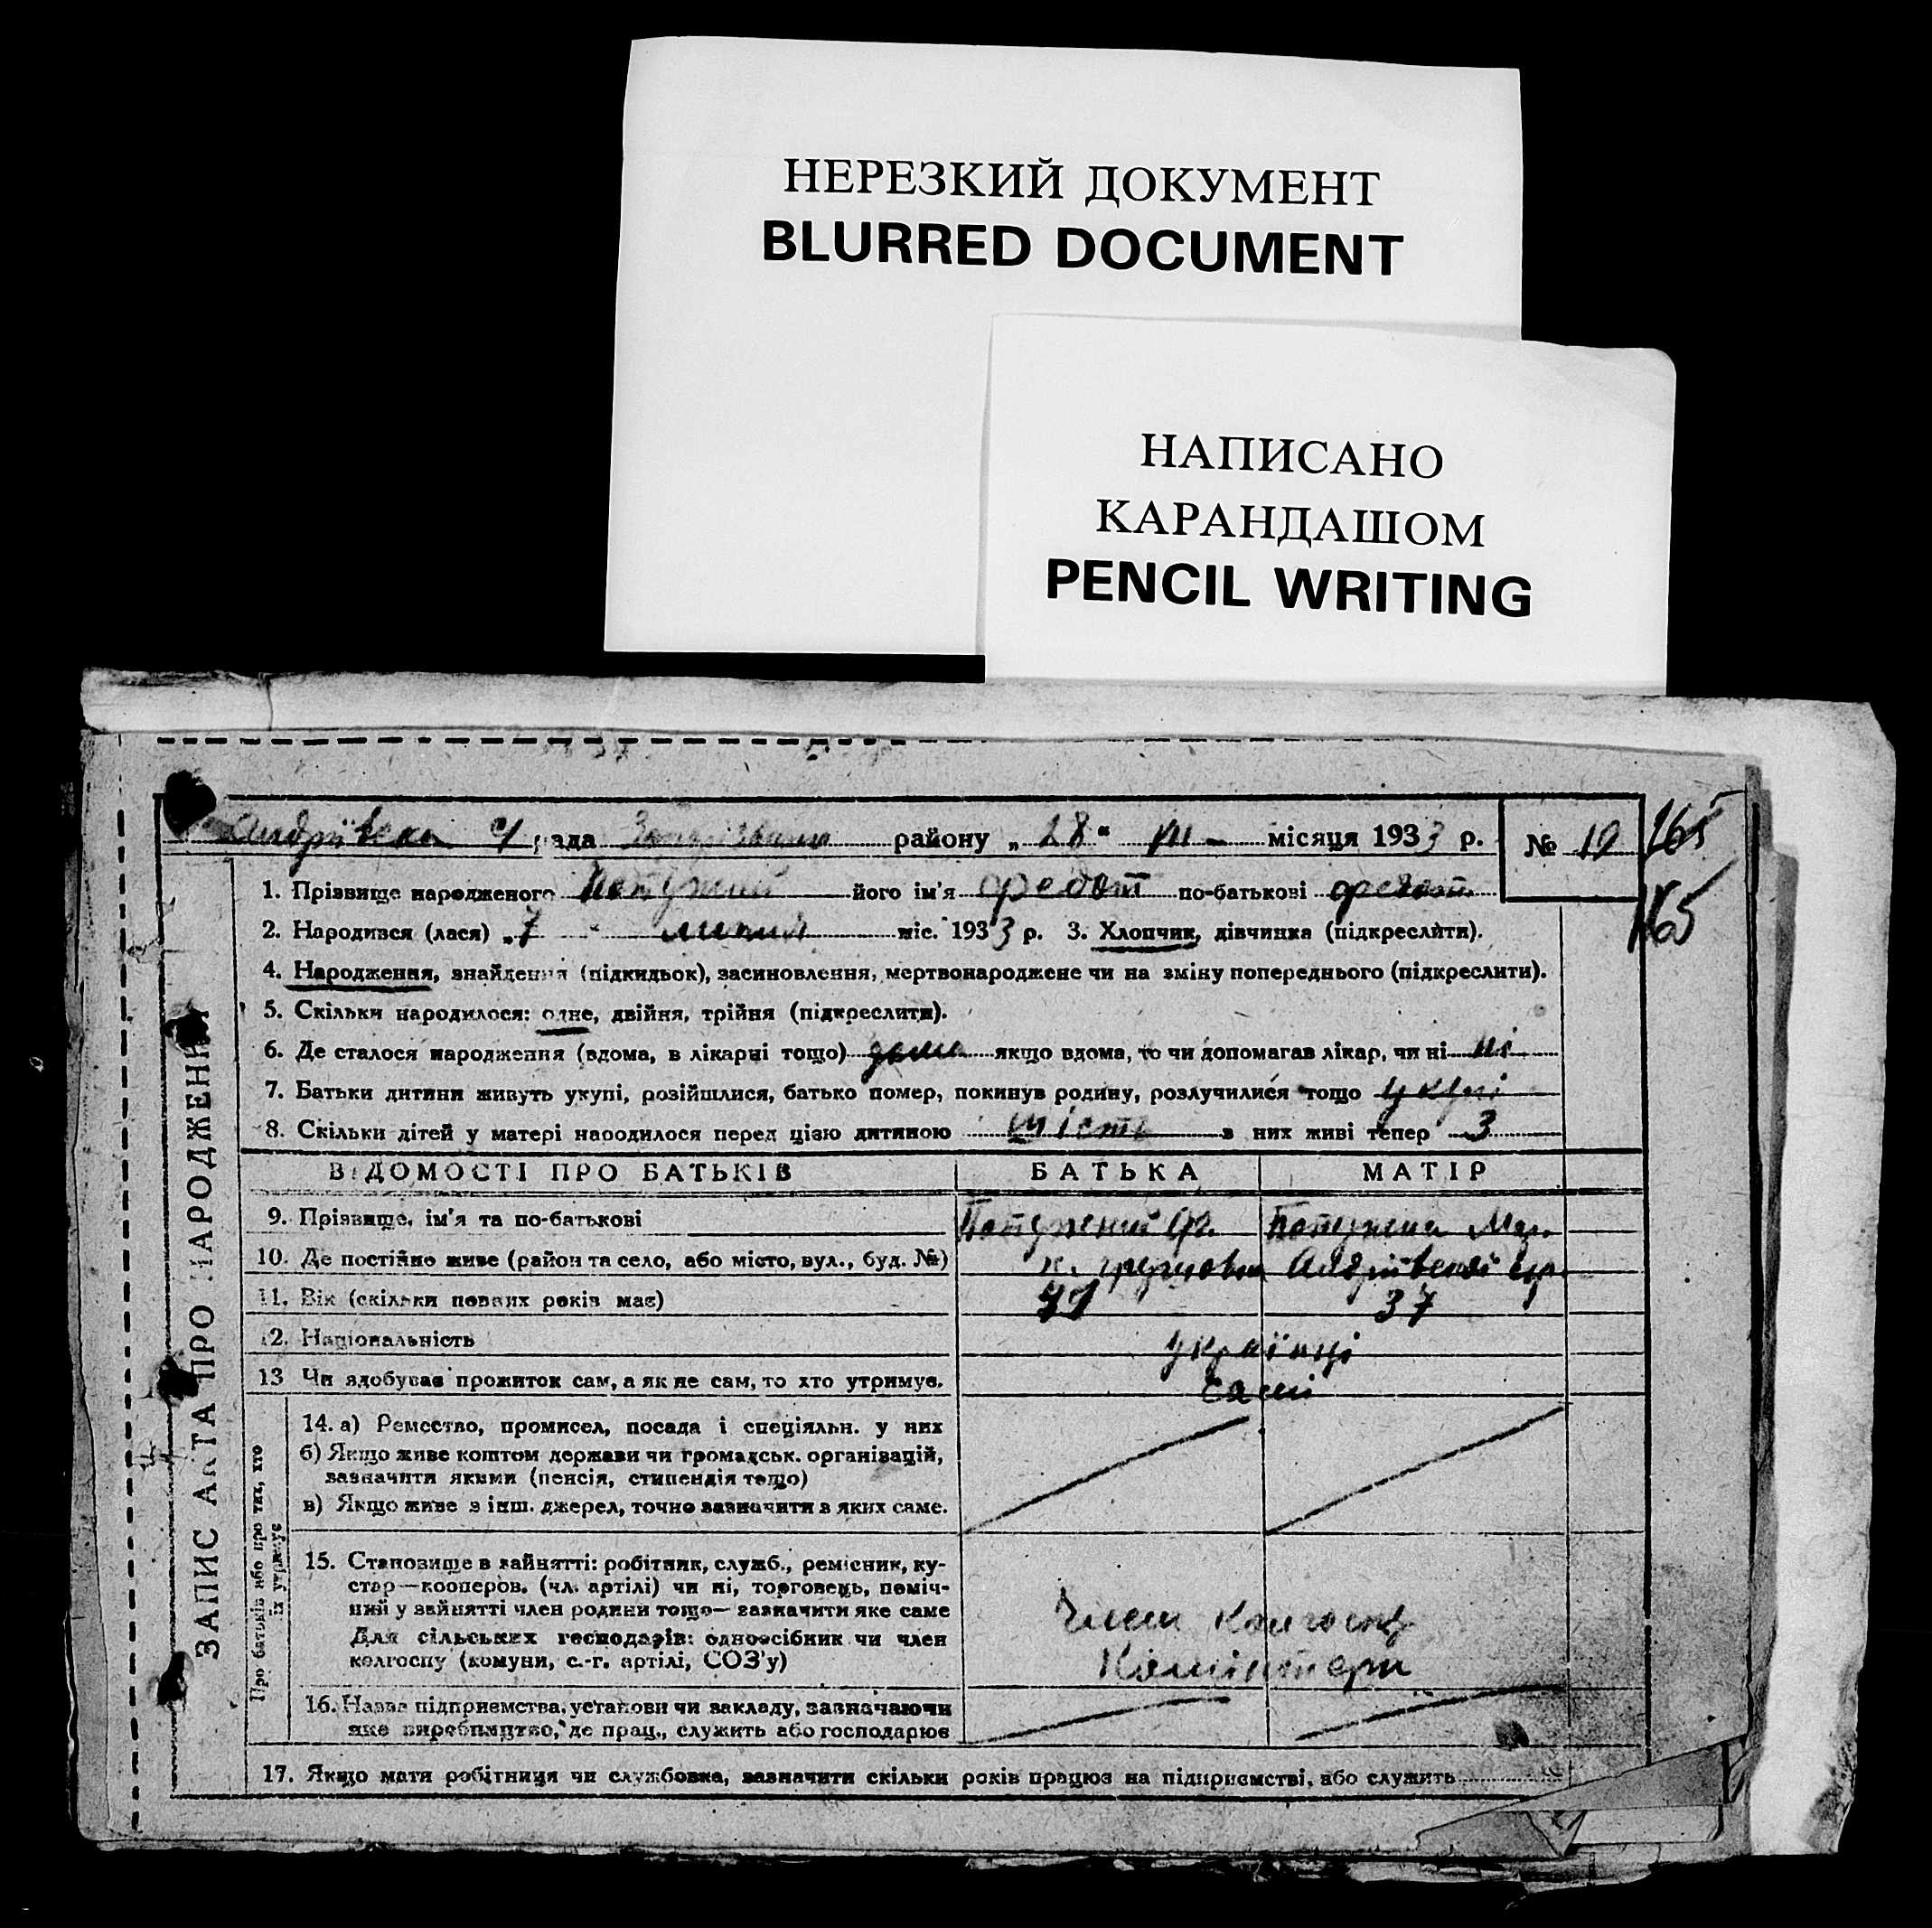 НЕРЕЗКИЙ ДОКУМЕНТ
BLURRED DOCUMENT
НАПИСАНО
КАРАНДАШОМ
PENCIL WRITING
рада району „28“ VII - місяця 1933 р. № 19 165
165
1. Прізвище народженого Потужний його ім'я Федот по-батькові Федот.
2. Народився (лася) „7 “ липня міс. 1933 р. 3. Хлопчик, дівчинка (підкреслити).
4. Народження, знайдення (підкидьок), засиновлення, мертвонароджене чи на зміну попереднього (підкреслити).
5. Скільки народилося: одне, двійня, трійня (підкреслити).
6. Де сталося народження (вдома, в лікарні тощо) дома якщо вдома, то чи допомагав лікар, чи ні ні
7. Батьки дитини живуть укупі, розійшлися, батько помер, покинув родину, розлучилися тощо укупі
8. Скільки дітей у матері народилося перед цією дитиною шість з них живі тепер 3
ЗАПИС АКТА ПРО НАРОДЖЕННЯ
ВІДОМОСТІ ПРО БАТЬКІВ БАТЬКА МАТІР
9. Прізвище, ім'я та по-батькові Потужний Потужна Мар.
10. Де постійно живе (район та село, або місто, вул., буд. №)
11. Вік (скільки повних років має) 37
12. Національність українці
13 Чи здобуває прожиток сам, а як не сам, то хто утримує. самі
Про батьків або про тих, хто їх утримує
14. а) Ремество, промисел, посада і спеціяльн. у них
б) Якщо живе коштом держави чи громадськ. організацій,
зазначити якими (пенсія, стипендія тощо)
в) Якщо живе з інш. джерел, точно зазначити з яких саме.
15. Становище в зайнятті: робітник, служб., ремісник, ку-
стар—кооперов. (чл. артілі) чи ні, торговець, поміч-
ний у зайнятті член родини тощо—зазначити яке саме
Для сільських господарів: одноосібник чи член
колгоспу (комуни, с.-г. артілі, СОЗ'у)
Член колгоспу
Комінтерн
16. Назва підприємства, установи чи закладу, зазначаючи
яке виробництво, де прац., служить або господарює
17. Якщо мати робітниця чи службовка, зазначити скільки років працює на підприємстві, або служить